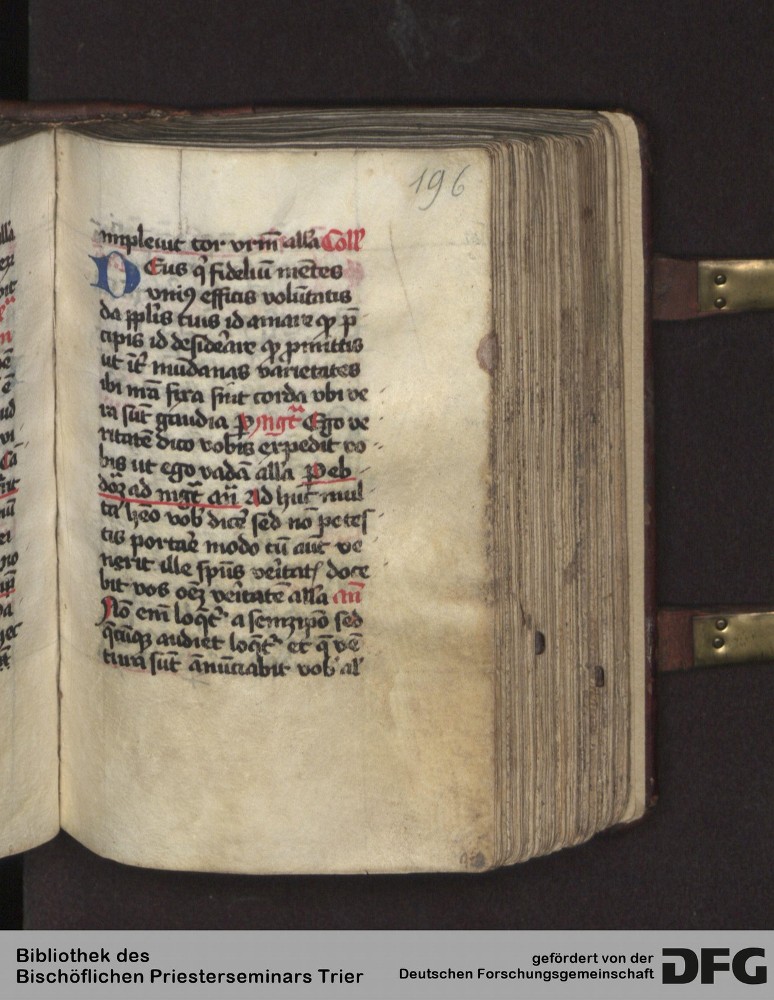 196
impleuit cor vr̄m̄ alla Coll
DEus q' fideliū mētes
vni9 efficis volūtatis
da pplis tuis id amare qp p̄
cipis id desiderare qp pmittis
ut it' mūdanas varietates
ibi nrā fixa sīnt corda vbi ve
ra sūt gaudia Ego ve
ritatē dico vobis expedit vo
bis ut ego vadā alla Peb
doꝫ ad mgt an̄ Ad huc mul
ta hēo vob dicē sed nō potes
tis portare modo cū aut ve
nerit ille spūs veritat doce
bit vos oēꝫ veritatē alla an̄
Nō em̄ loqt' a semetipo sed
qcūqꝫ audiet loqt' et q vē
tura sūt ānūciabit vob al'
Bibliothek des
Bischöflichen Priesterseminars Trier
gefördert von der
Deutschen Forschungsgemeinschaft DFG